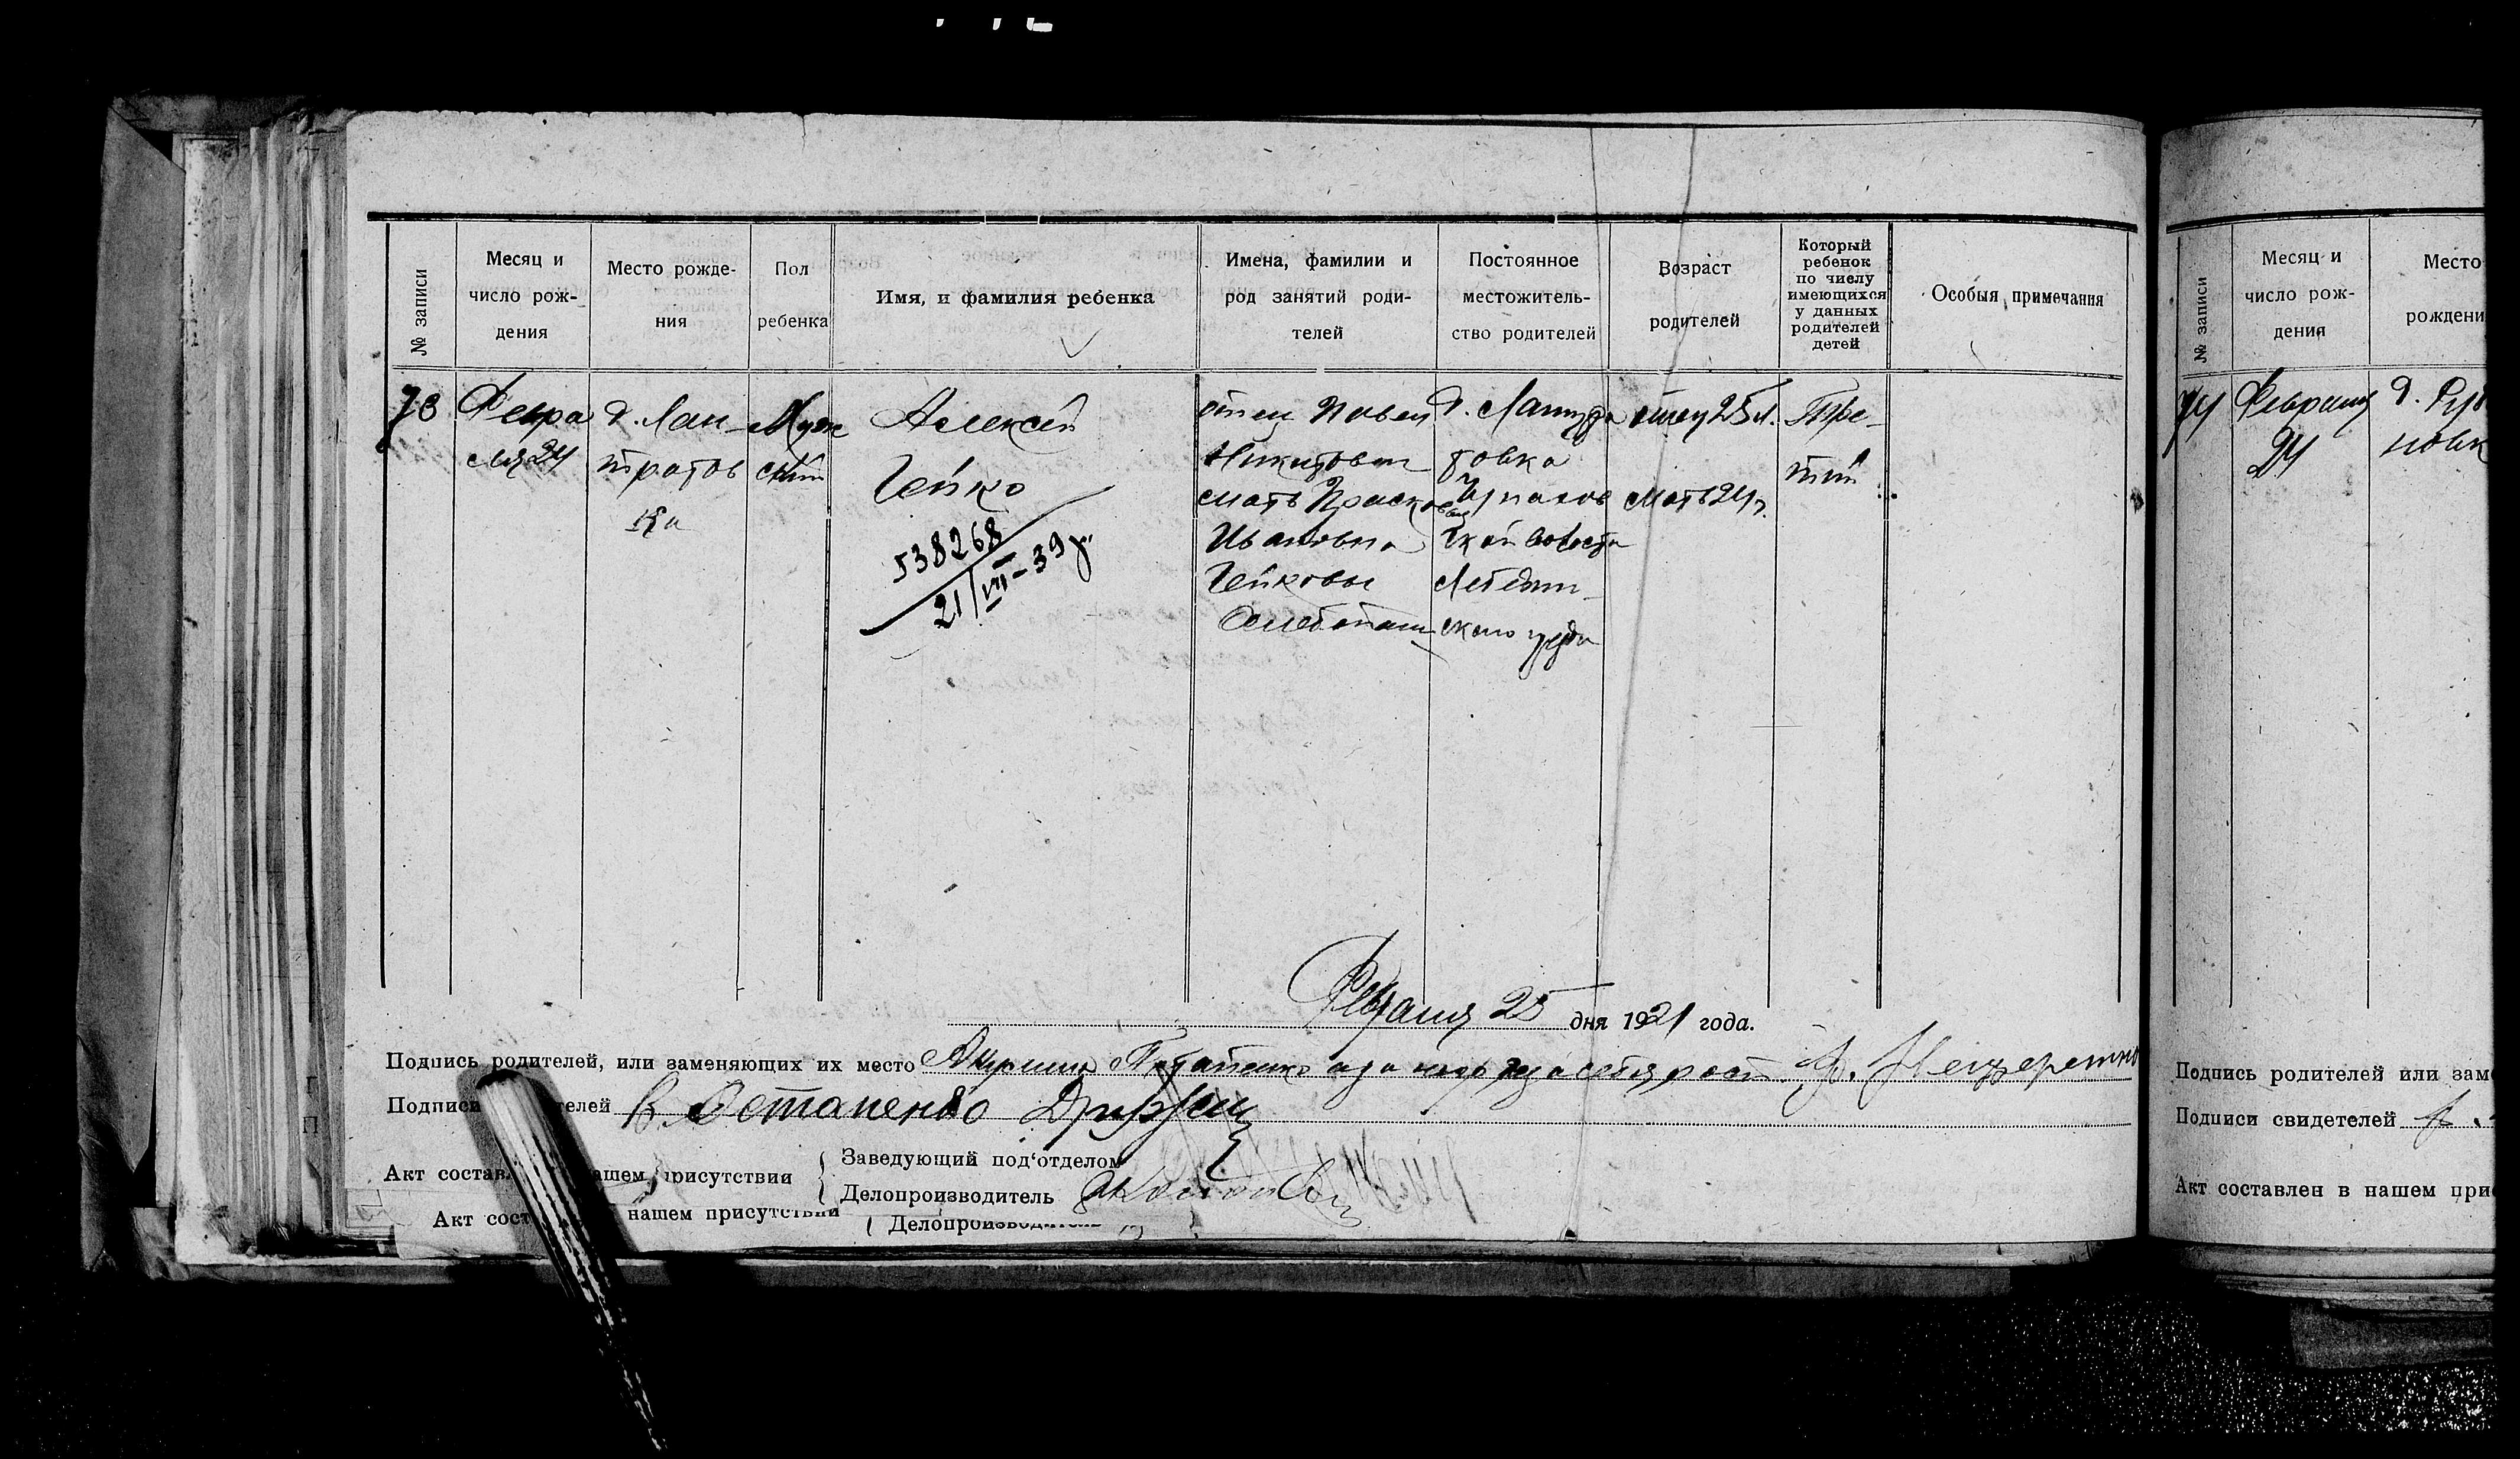 № записи
Месяц и число рождения
Место рожде-
ния
Пол
ребенка
Имя, и фамилия ребенка
Имена, фамилии и
род занятий роди-
телей
Постоянное
местожитель-
ство родителей
Возраст
родителей
Который
ребенок
по числу
имеющихся
у данных
родителей
детей
Особыя примечания
73
Февра
ля 24
д. Лан-
тратов
ка
Муж
ский
Алексей
Гейко
538268
21/VII-39 г.
отец Павел
Никитович
мать Праско
вья
Ивановна
Гейковы
д.
товка
ской волости
Лебедин-
ского уезда
отец 25 л.
мать 24 г.
Тре-
тий
Февраля 25 дня 1921 года.
Подпись родителей, или заменяющих их место Акулина
В. Остапенко
Акт состав нашем присутствии
Заведующий под'отделом
Делопроизводитель
Акт сост нашем присутствии
Делопроизводитель
№ записи
Месяц и
число рож-
дения
Место
рождени
74
Февраля
24
д.
новк
Подпись родителей или зам
Подписи свидетелей
Акт составлен в нашем при